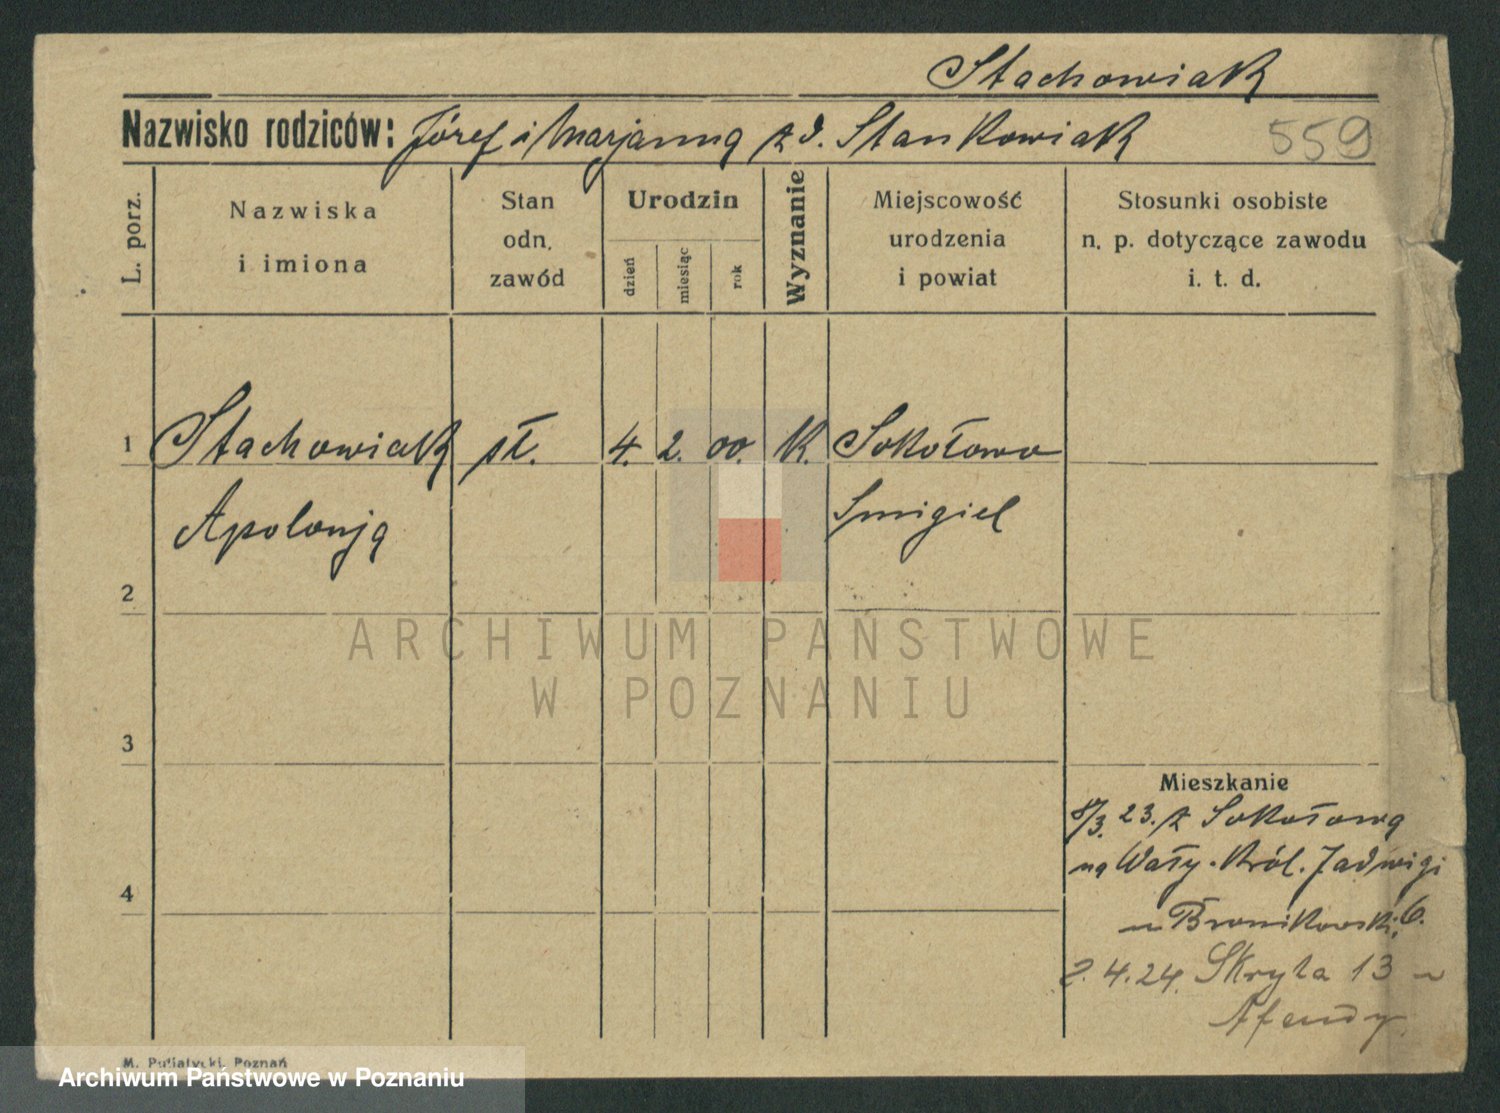 Stachowiak
Nazwisko rodziców: Józef i Marjanna z d. Stankowiak 559
L. porz.
Nazwiska
i imiona
Stan
odn.
zawód
Urodzin
dzień
miesiąc
rok
Wyznanie
Miejscowość
urodzenia
i powiat
Stosunki osobiste
n. p. dotyczące zawodu
i. t. d.
1 Stachowiak sł. 4. 2. 00. K. Sokołowo
Apolonja Smigiel
2
ARCHIWUM PAŃSTWOWE
W POZNANIU
3
Mieszkanie
8/3. 23. z Sokołowa
na Wały. Król. Jadwigi
4
u Bronikowski, 6.
2.4.24. Skryta 13 u
M. Putiatycki, Poznań
Archiwum Państwowe w Poznaniu